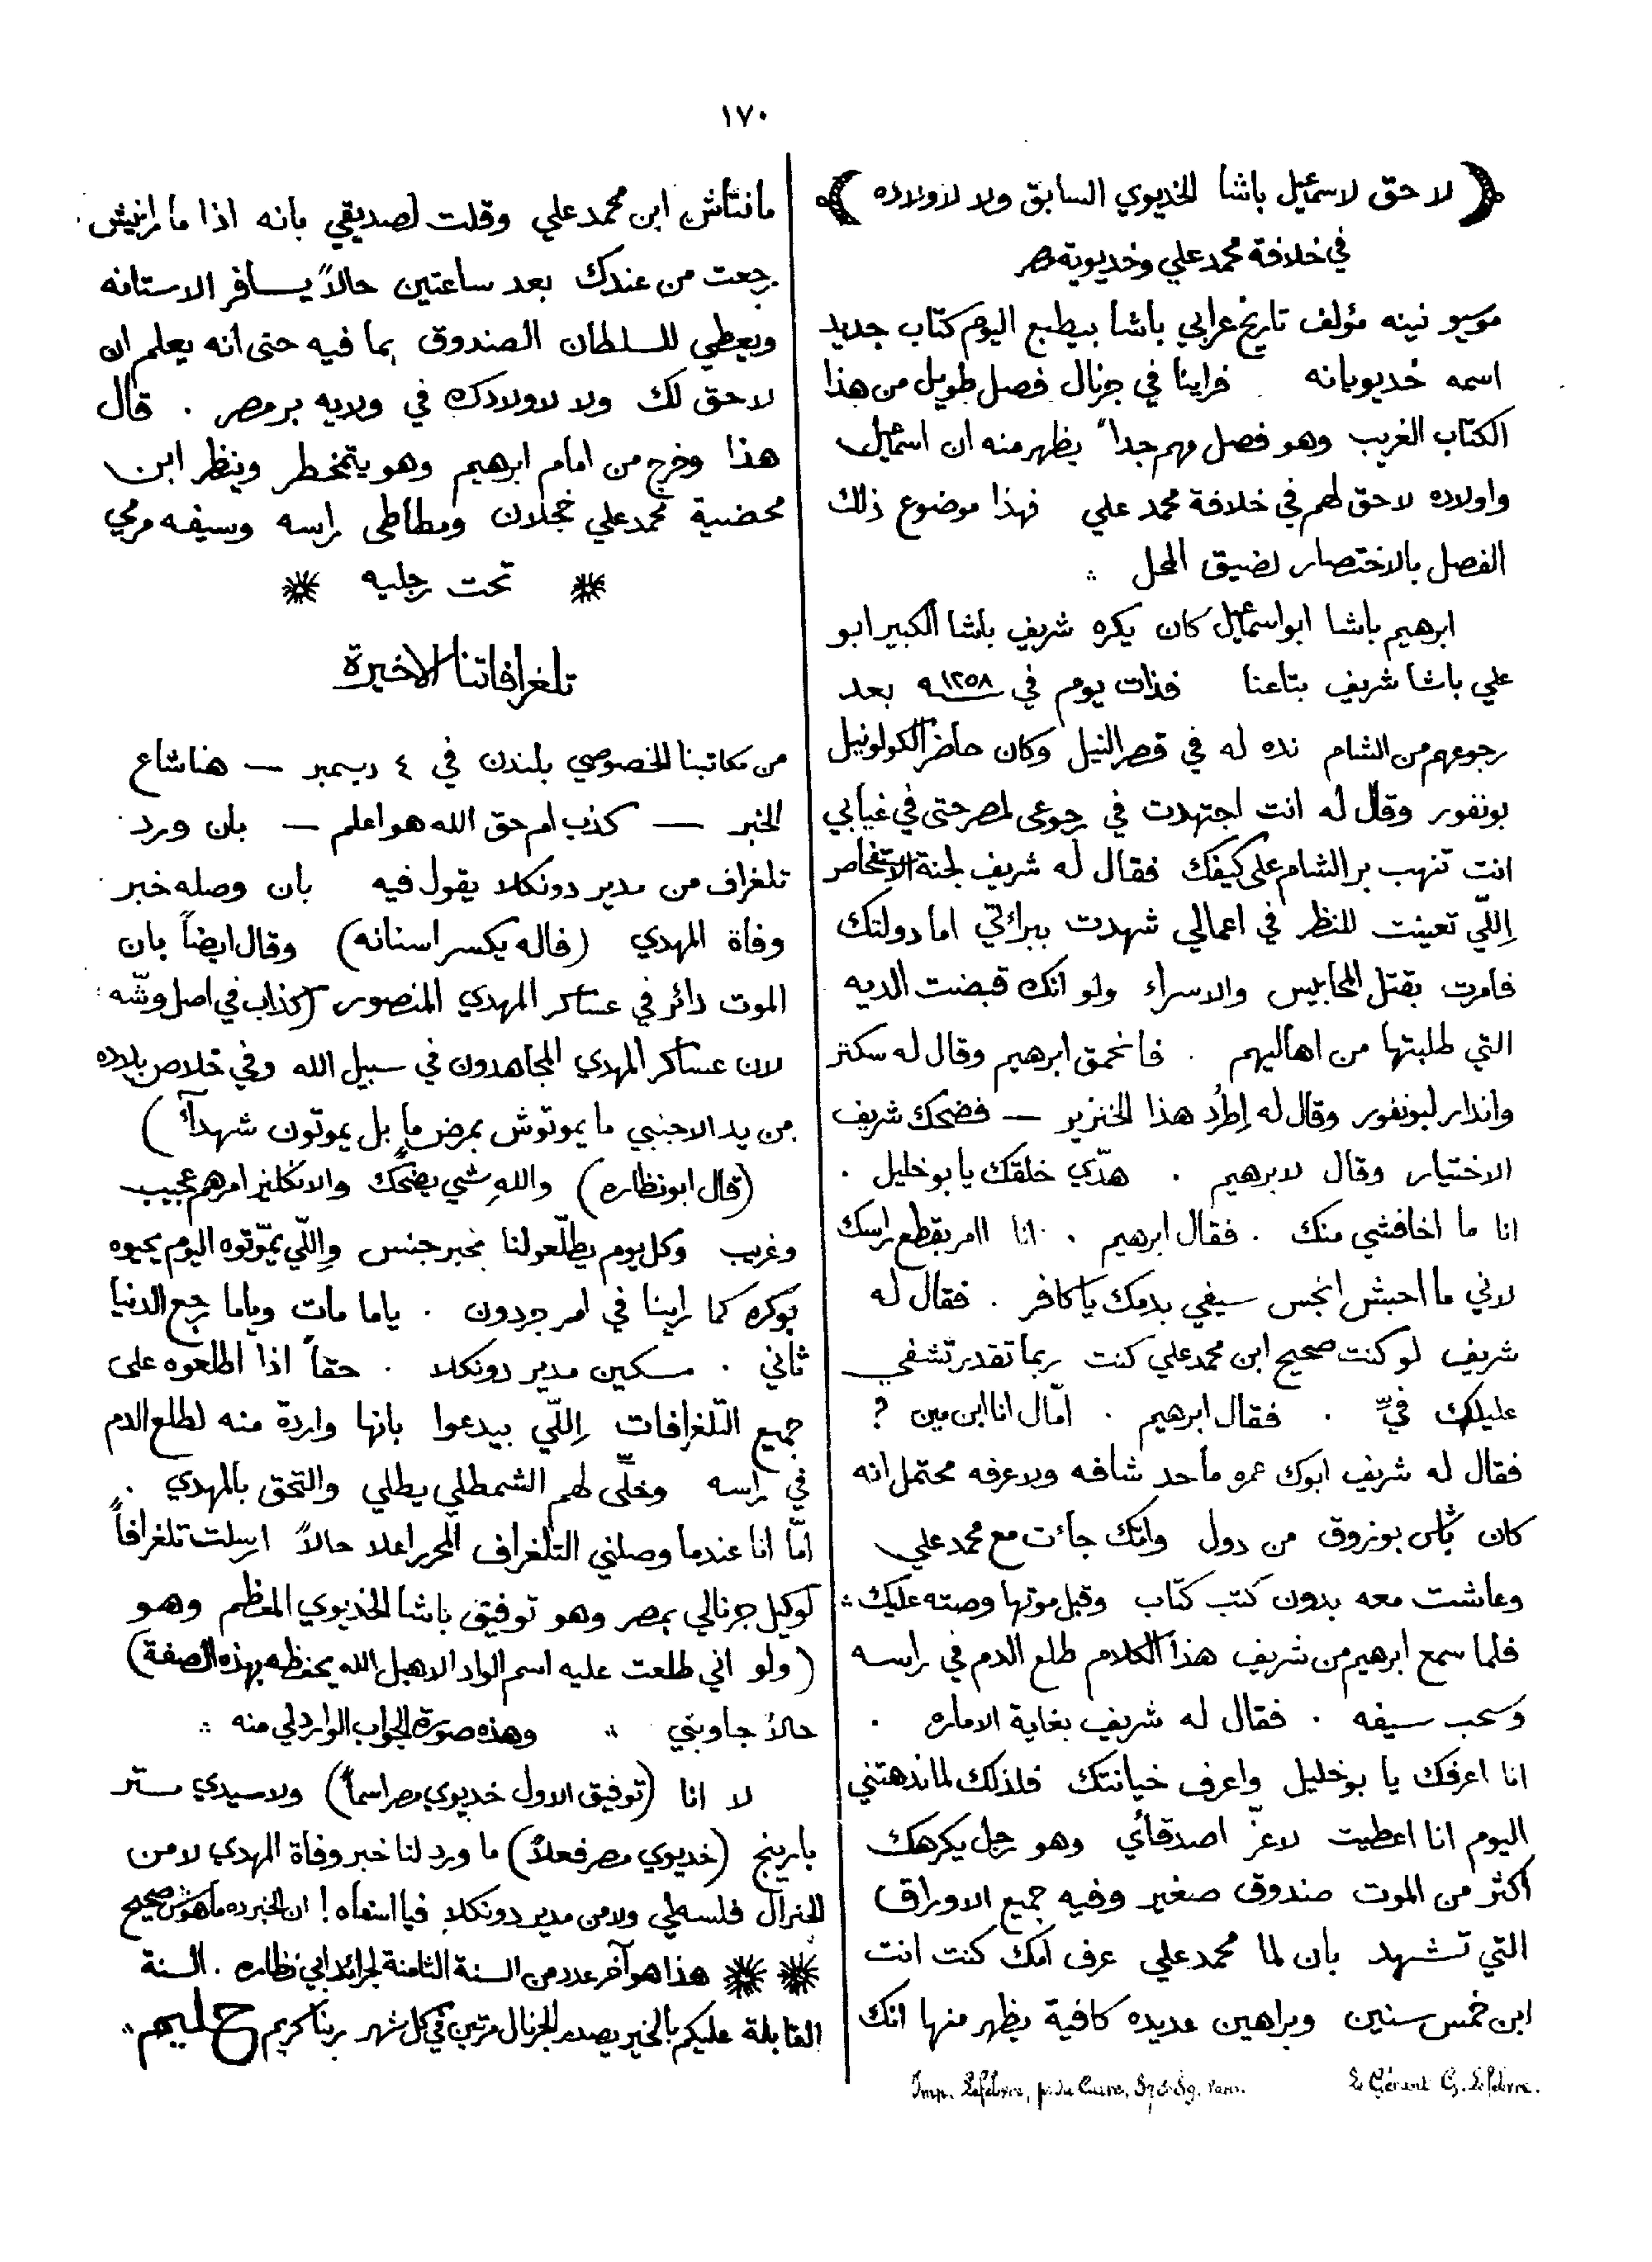 ١٧٠
لا حق لاسمعيل باشا الخديوي السابق ولا لاولاده
في خلافة محمد علي وخديوية مصر
موسيو نينه مؤلف تاريخ عرابي باشا بيطبع اليوم كتاب جديد
اسمه خديوبانه فراينا في جرنال فصل طويل من هذا
الكتاب الغريب وهو فصل مهم جداً يظهر منه ان اسمعيل
واولاده لا حق لهم في خلافة محمد علي فهذا موضوع ذلك
الفصل بالاختصار لضيق المحل
ابرهيم باشا ابو اسمعيل كان يكره شريف باشا الكبير ابو
علي باشا شريف بتاعنا فذات يوم في ١٢٥٨ بعد
رجوعهم من الشام نده له في قصر النيل وكان حاضر الكولونيل
بونفور وقال له انت اجتهدت في رجوعى لمصر حتى في غيابي
انت تنهب بر الشام على كيفك فقال له شريف لجنة
اللّي تعينت للنظر في اعمالي شهدت ببرائتي اما دولتك
فامرت بقتل المحابيس والاسراء ولو انك قبضت الديه
التي طلبتها من اهاليهم . فانحمق ابرهيم وقال له سكتر
واندار لبونفور وقال له اِطرُد هذا الخنزير — فضحك شريف
الاختيار وقال لابرهيم . هدّي خلقك يا بو خليل .
انا ما اخافشي منك . فقال ابرهيم . انا اامر بقطع راسك
لاني ما احبش انجس سيفي بدمك يا كافر . فقال له
شريف لو كنت صحيح ابن محمد علي كنت ربما تقدر تشفي
عليلك فيّ . فقال ابرهيم . امّال انا ابن مين ?
فقال له شريف ابوك عمره ما حد شافه ولا عرفه محتمل انه
كان باش بوزوق من دول وامّك جاءت مع محمد علي
وعاشت معه بدون كتب كتاب وقبل موتها وصته عليك
فلما سمع ابرهيم من شريف هذا الكلام طلع الدم في راسه
وسحب سيفه . فقال له شريف بغاية الاماره .
انا اعرفك يا بو خليل واعرف خيانتك فلذلك لما ندهتني
اليوم انا اعطيت لاعزّ اصدقائي وهو رجل يكرهك
اكثر من الموت صندوق صغير وفيه جميع الاوراق
التي تشهد بان لما محمد علي عرف امك كنت انت
ابن خمس سنين وبراهين عديده كافية يظهر منها انك
مانتاش ابن محمد علي وقلت لصديقي بانه اذا ما رانيش
رجعت من عندك بعد ساعتين حالاً يسافر الاستانه
ويعطي للسلطان الصندوق بما فيه حتى انه يعلم ان
لا حق لك ولا لاولادك في ولاية بر مصر . قال
هذا وخرج من امام ابرهيم وهو يتمخطر وينظر ابن
محضية محمد علي خجلان ومطاطى راسه وسيفه مرمي
تحت رجليه
تلغرافاتنا الاخيرة
من مكاتبنا الخصوصي بلندن في ٤ ديسمبر — هنا شاع
الخبر — كذب ام حق الله هو اعلم — بان ورد
تلغراف من مدير دونكلا يقول فيه بان وصله خبر
وفاة المهدي (فاله يكسر اسنانه) وقال ايضاً بان
الموت دائر في عساكر المهدي المنصور (كذاب في اصل وشّه
لان عساكر المهدي المجاهدون في سبيل الله وفي خلاص بلاده
من يد الاجنبي ما يموتوش بمرض ما بل يموتون شهداً)
(قال ابو نظاره) والله شي يضحّك والانكليز امرهم عجيب
وغريب وكل يوم يطلّعوا لنا بخبر جنس واِللّي يموّتوه اليوم يحيوه
بوكره كما راينا في امر جردون . ياما مات وياما رجع الدنيا
ثاني . مسكين مدير دونكلا . حقاً اذا اطلعوه على
جميع التلغرافات اِللّي بيدعوا بانها واردة منه لطلع الدم
في راسه وخلّى لهم الشمطلي يطلي والتحق بالمهدي .
امّا انا عندما وصلني التلغراف المحرر اعلا حالاً ارسلت تلغرافاً
لوكيل جرنالي بمصر وهو توفيق باشا الخديوي المعظم وهو
(ولو اني طلعت عليه اسم الواد الاهبل الله يحفظه بهذه الصفة)
حالاً جاوبني وهذه صورة الجواب الوارد لي منه
لا انا (توفيق الاول خديوي مصر اسماً) ولا سيدي ستر
بارينج (خديوي مصر فعلاً) ما ورد لنا خبر وفاة المهدي لا من
الجنرال فلسطي ولا من مدير دونكلا فيا اسفاه ! ان الخبر ده ماهوش صحيح
هذا هو آخر عدد من السنة الثامنة لجرائد ابي نظاره . السنة
القابلة عليكم بالخير يصدر الجرنال مرتين في كل شهر ربنا كريم حليم
Imp. Lefebvre, Paris.
Le Gérant G. Lefebvre.